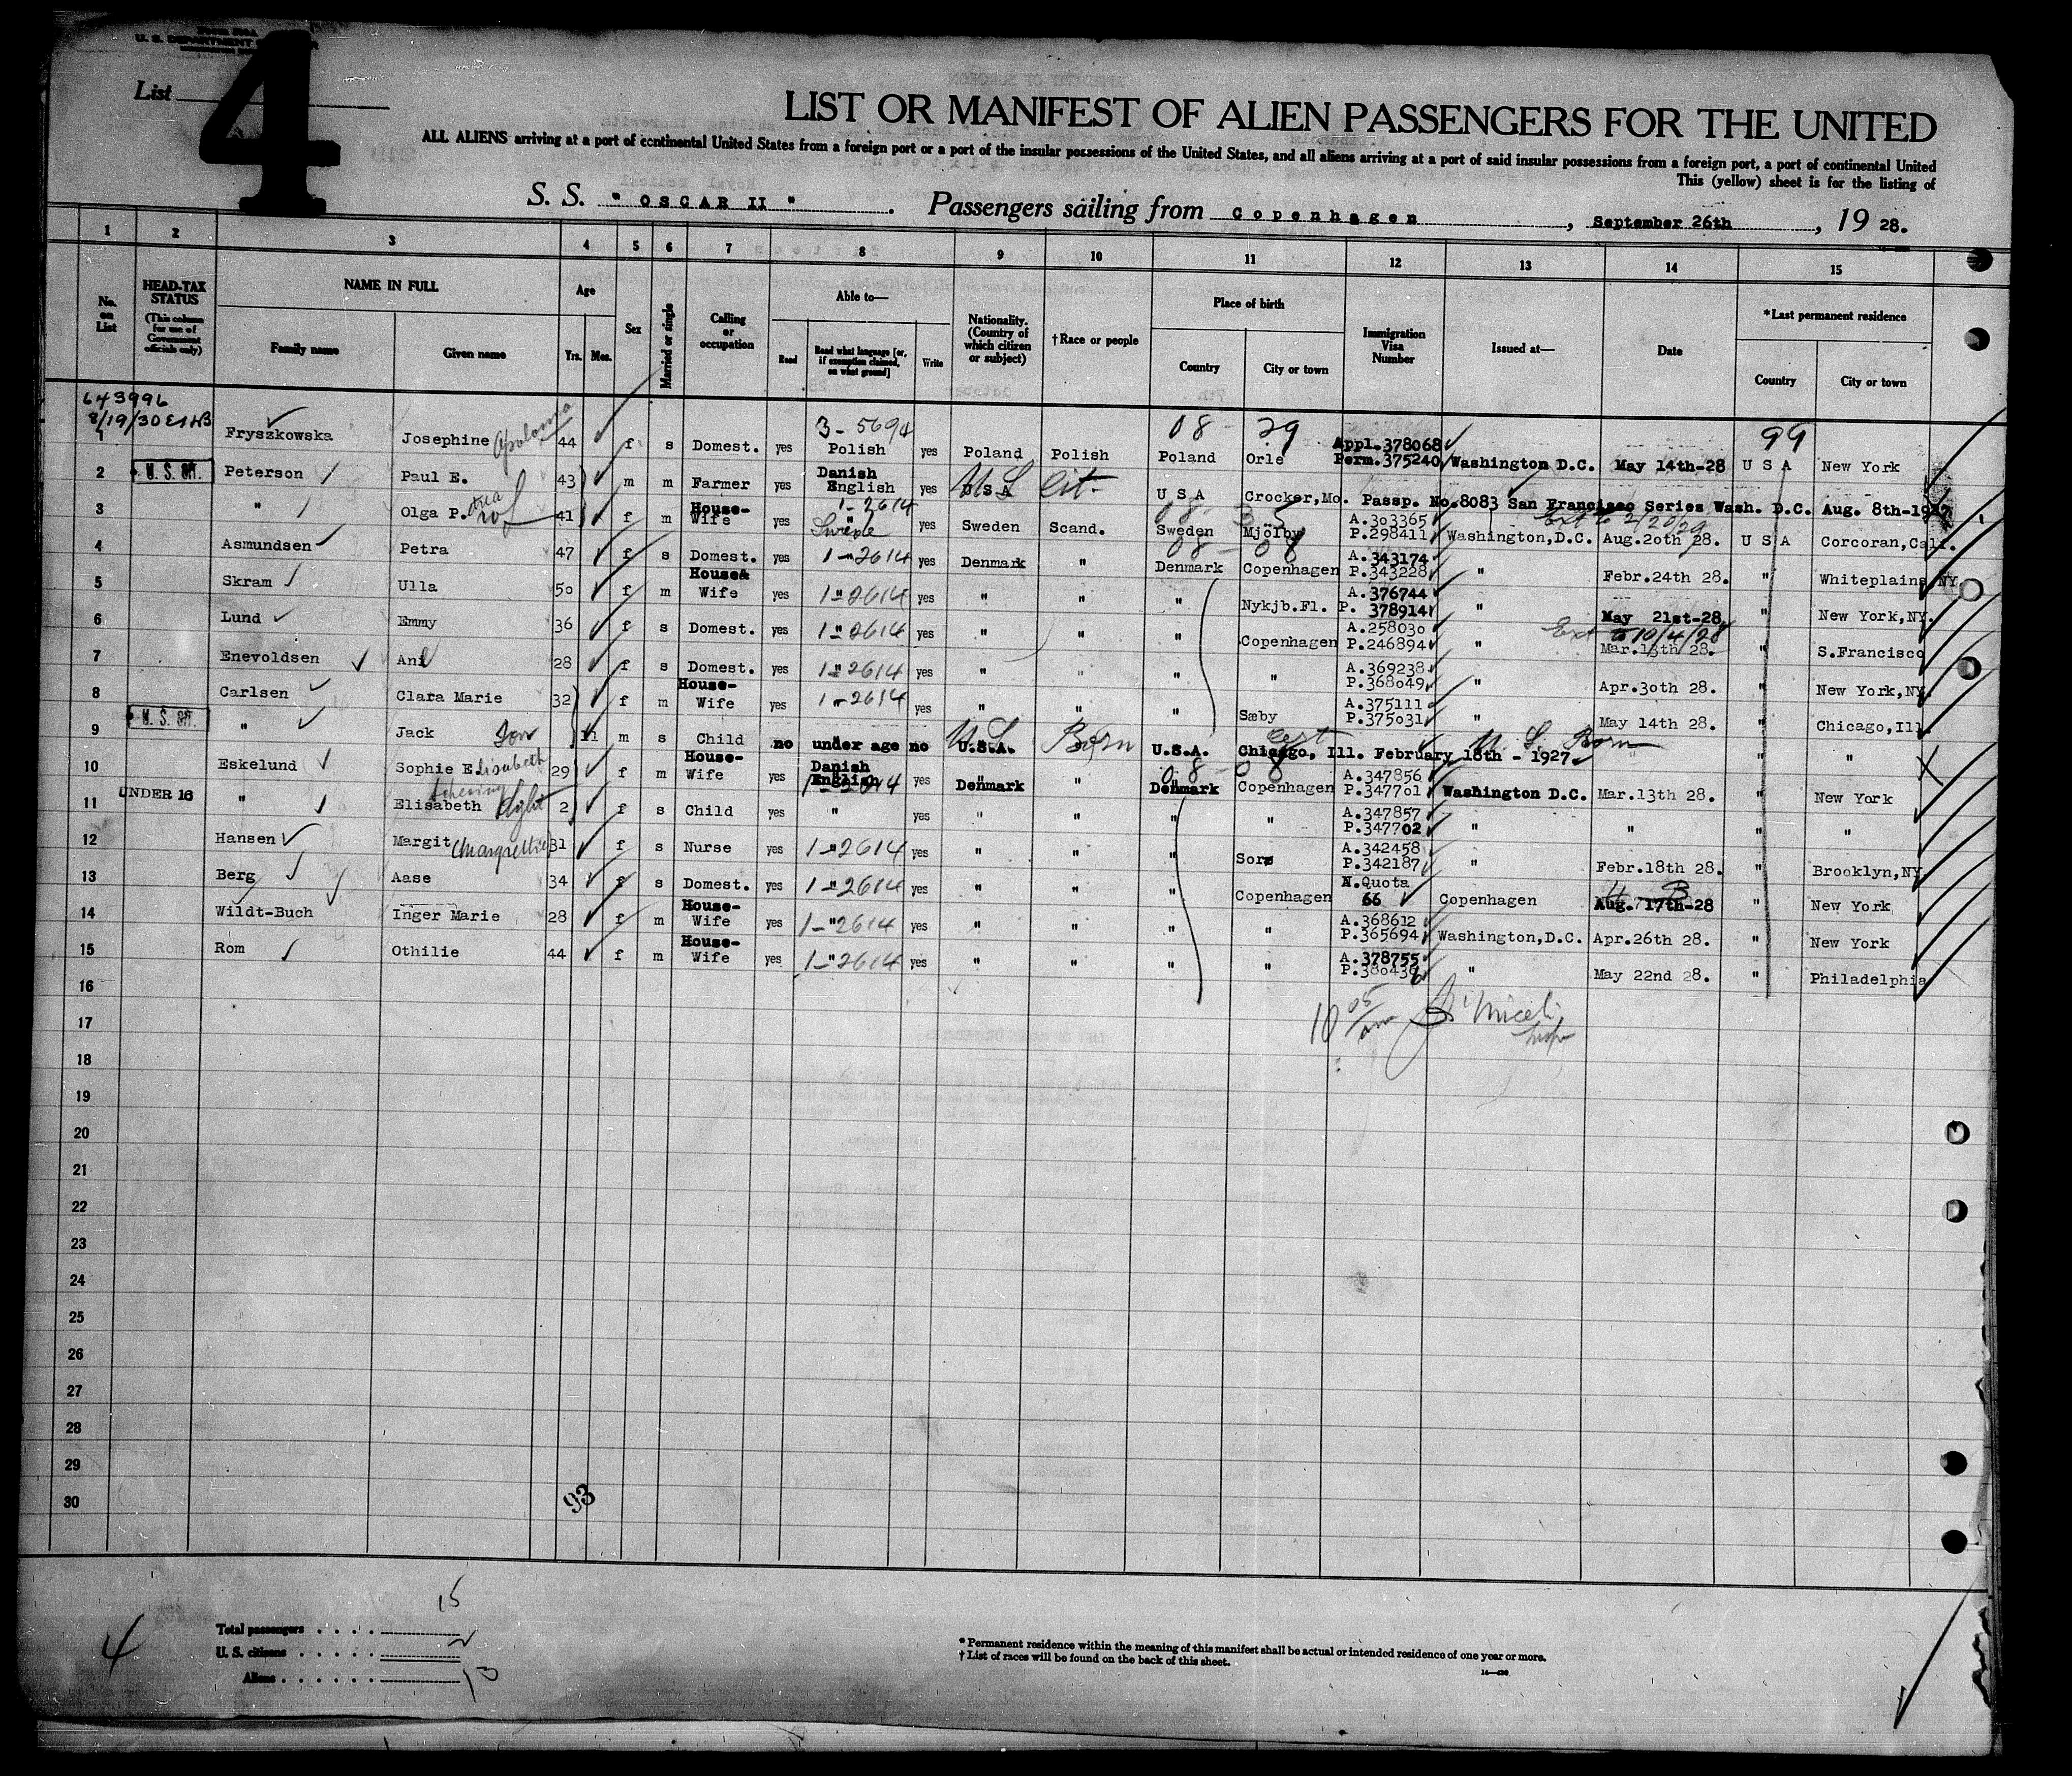 U. S. DEPARTMENT
List 4
LIST OR MANIFEST OF ALIEN PASSENGERS FOR THE UNITED
ALL ALIENS arriving at a port of continental United States from a foreign port or a port of the insular possessions of the United States, and all aliens arriving at a port of said insular possessions from a foreign port, a port of continental United
This (yellow) sheet is for the listing of
S. S. " OSCAR II ". Passengers sailing from Copenhagen, September 26th, 19 28.
1 2 3 4 5 6 7 8 9 10 11 12 13 14 15
No. on List
HEAD-TAX STATUS (This column for use of Government officials only)
NAME IN FULL Family name Given name
Age Yrs. Mos.
Sex
Married or single
Calling or occupation
Able to— Read Read what language [or, if exemption claimed, on what ground] Write
Nationality. (Country of which citizen or subject)
†Race or people
Place of birth Country City or town
Immigration Visa Number
Issued at—
Date
*Last permanent residence Country City or town
643996
8/19/30
3-5694 08 - 29 99
1 Fryszkowska Josephine Apolonia 44 f s Domest. yes Polish yes Poland Polish Poland Orle Appl.378068 Perm.375240 Washington D.C. May 14th-28 U S A New York
2 U.S. CIT. Peterson Paul E. 43 m m Farmer yes Danish English yes U S A US Cit. U S A Crocker,Mo. Passp. No.8083 San Francisco Series Wash. D.C. Aug. 8th-1927
1-2614 08 - 35 Ext to 2/20/29
3 " Olga P. wf 41 f m House-Wife yes " Swede yes Sweden Scand. Sweden Mjölby A.303365 P.298411 Washington,D.C. Aug.20th 28. U S A Corcoran,Calif.
08 - 08
4 Asmundsen Petra 47 f s Domest. yes 1-"2614 yes Denmark " Denmark Copenhagen A.343174 P.343228 " Febr.24th 28. " Whiteplains NY.
5 Skram Ulla 50 f m House& Wife yes 1-"2614 yes " " " Nykjb.Fl. A.376744 P. 378914 " May 21st-28 " New York,NY.
Ext to 10/4/28
6 Lund Emmy 36 f s Domest. yes 1-"2614 yes " " " Copenhagen A.258030 P.246894 " Mar.13th 28. " S.Francisco
7 Enevoldsen Ani 28 f s Domest. yes 1-"2614 yes " " " " A.369238 P.368049 " Apr.30th 28. " New York,NY.
8 Carlsen Clara Marie 32 f m House-Wife yes 1-2614 yes " " " Sæby A.375111 P.375031 " May 14th 28. " Chicago,Ill.
9 U.S. CIT. " Jack Son 11 m s Child no under age no U.S.A. U.S. Born U.S.A. Chicago, Ill. February 18th - 1927 Cert U. S. Born " "
10 Eskelund Sophie Elisabeth 29 f m House-Wife yes Danish English 1-2614 yes Denmark " Denmark 08 - 08 Copenhagen A.347856 P.347701 Washington D.C. Mar.13th 28. " New York
11 UNDER 16 " Elisabeth 2 f s Child yes " yes " " " " A.347857 P.347702 " " " "
12 Hansen Margit 31 f s Nurse yes 1-"2614 yes " " " Sorø A.342458 P.342187 " Febr.18th 28. " Brooklyn,NY
13 Berg Aase 34 f s Domest. yes 1-"2614 yes " " " Copenhagen N.Quota 66 Copenhagen Aug. 17th-28 " New York
14 Wildt-Buch Inger Marie 28 f m House-Wife yes 1-"2614 yes " " " " A.368612 P.365694 Washington,D.C. Apr.26th 28. " New York
15 Rom Othilie 44 f m House-Wife yes 1-"2614 yes " " " " A.378755 P.380436 " May 22nd 28. " Philadelphia
16
17
18
19
20
21
22
23
24
25
26
27
28
29
30
93
4
15
Total passengers
U. S. citizens 2
Aliens 13
* Permanent residence within the meaning of this manifest shall be actual or intended residence of one year or more.
† List of races will be found on the back of this sheet.